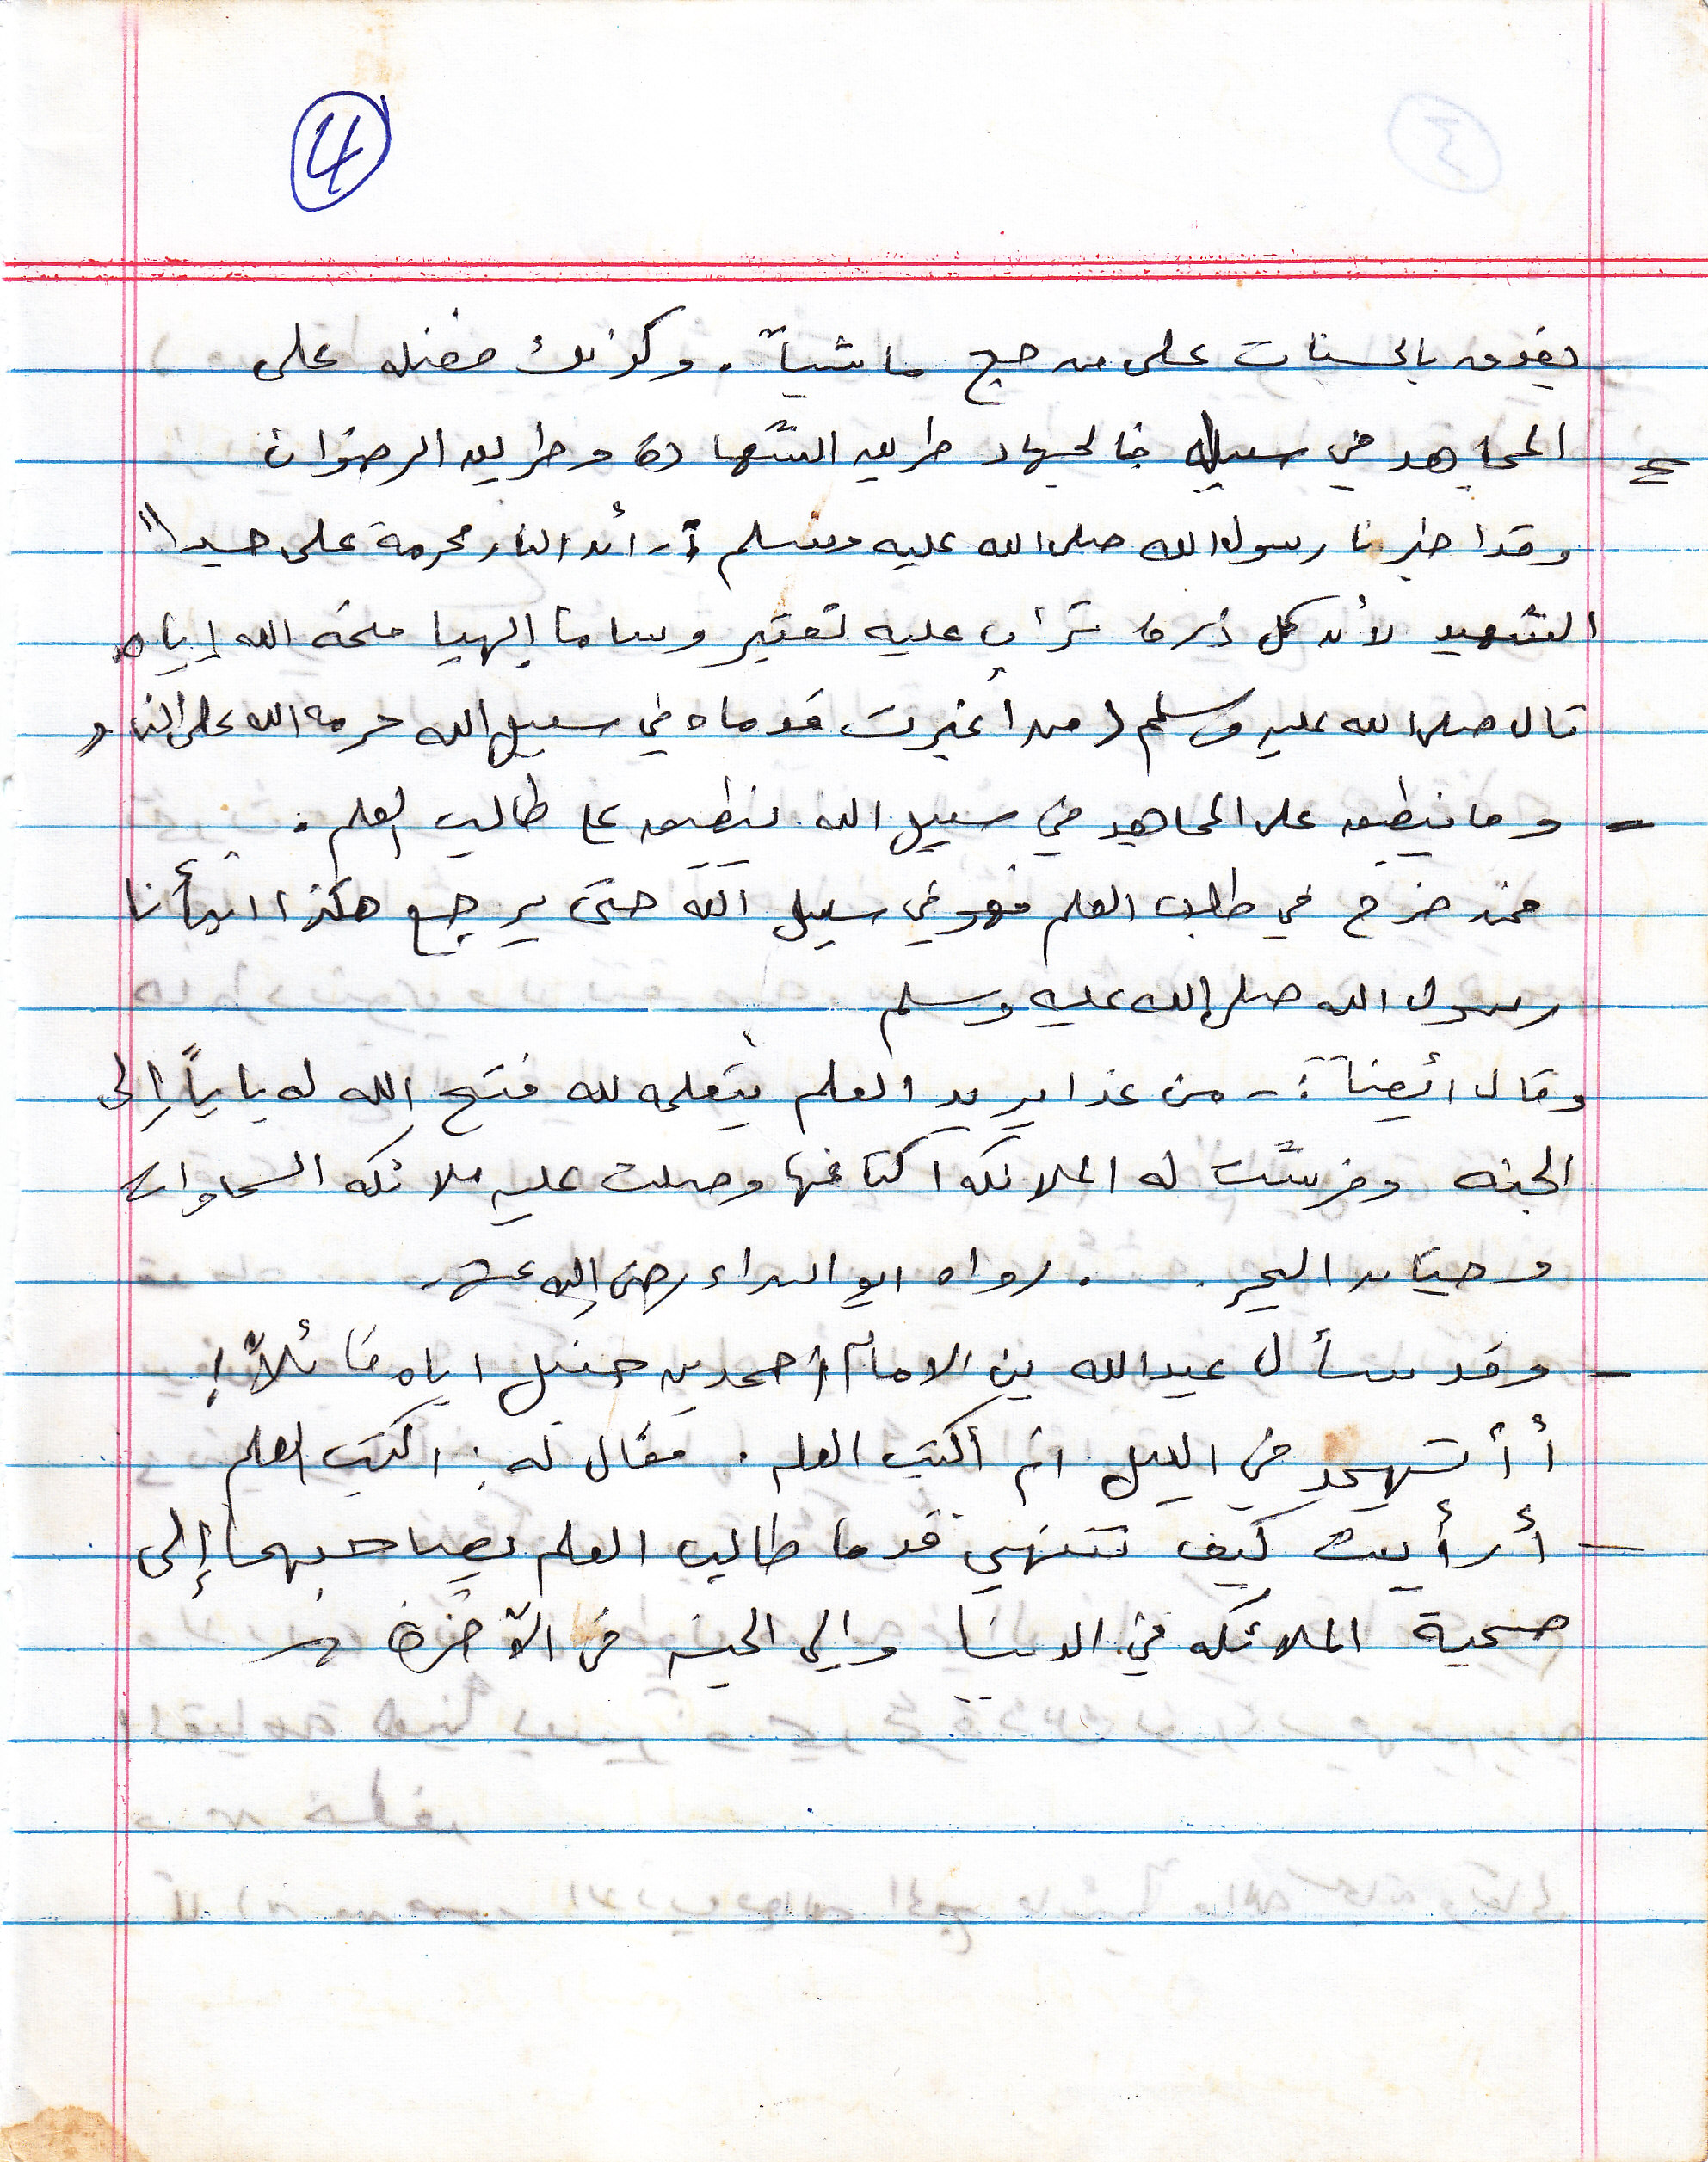 4
يفوق بالحسنات على من حج ماشياً . وكذلك فضله على
المجاهد في سبيل الله فالجهاد طريق الشهادة وطريق الرضوان
وقد اخبرنا رسول الله صلى الله عليه وسلم :- أن النار محرمة على جسد
الشهيد لأن كل ذرة تراب عليه تعتبر وساما إلهيا منحه الله إياه
قال صلى الله عليه وسلم ( من أغبرت قدماه في سبيل الله حرمه الله على النار
- وما ينطبق على المجاهد في سبيل الله ينطبق على طالب العلم .
فمن خرج في طلب العلم فهو في سبيل الله حتى يرجع هكذا انبأنا
رسول الله صلى الله عليه وسلم
وقال أيضاً :- من غدا يريد العلم يتعلمه لله فتح الله له باباً إلى
الجنه وفرشت له الملائكه اكنافها وصلت عليه ملائكه السماوات
وحيتان البحر . رواه ابو الدرداء رضي الله عنه .
- وقد سأل عبدالله بن الامام أحمد بن حنبل اباه قائلاً :
أ أتهجد في الليل ام أكتب العلم . فقال له : اكتب العلم
- أرأيت كيف تنتهي قدما طالب العلم بصاحبهما إلى
صحبة الملائكه في الدنيا وإلى الجنه في الآخرة